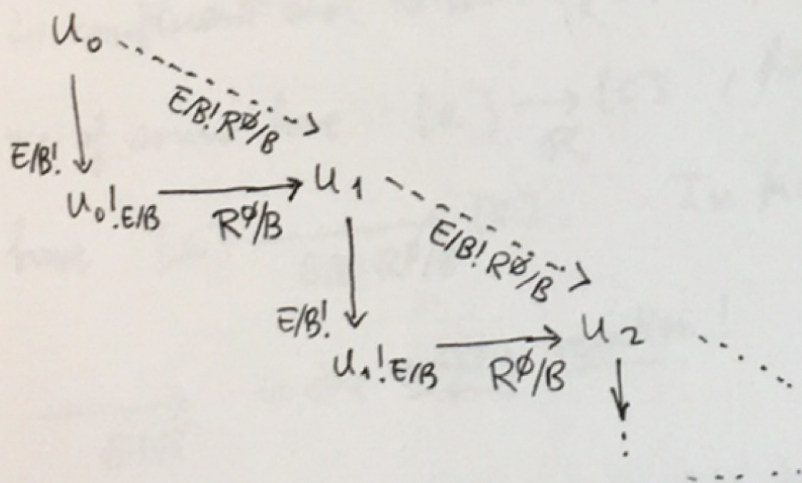 u₀
E/B!R∅/B
E/B!
u₀!E/B
R∅/B
u₁
E/B!R∅/B
E/B!
u₁!E/B
R∅/B
u₂